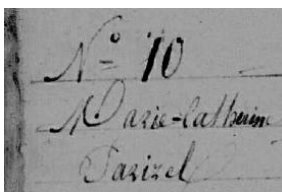 N° 10
Marie-Catherin
Parizel